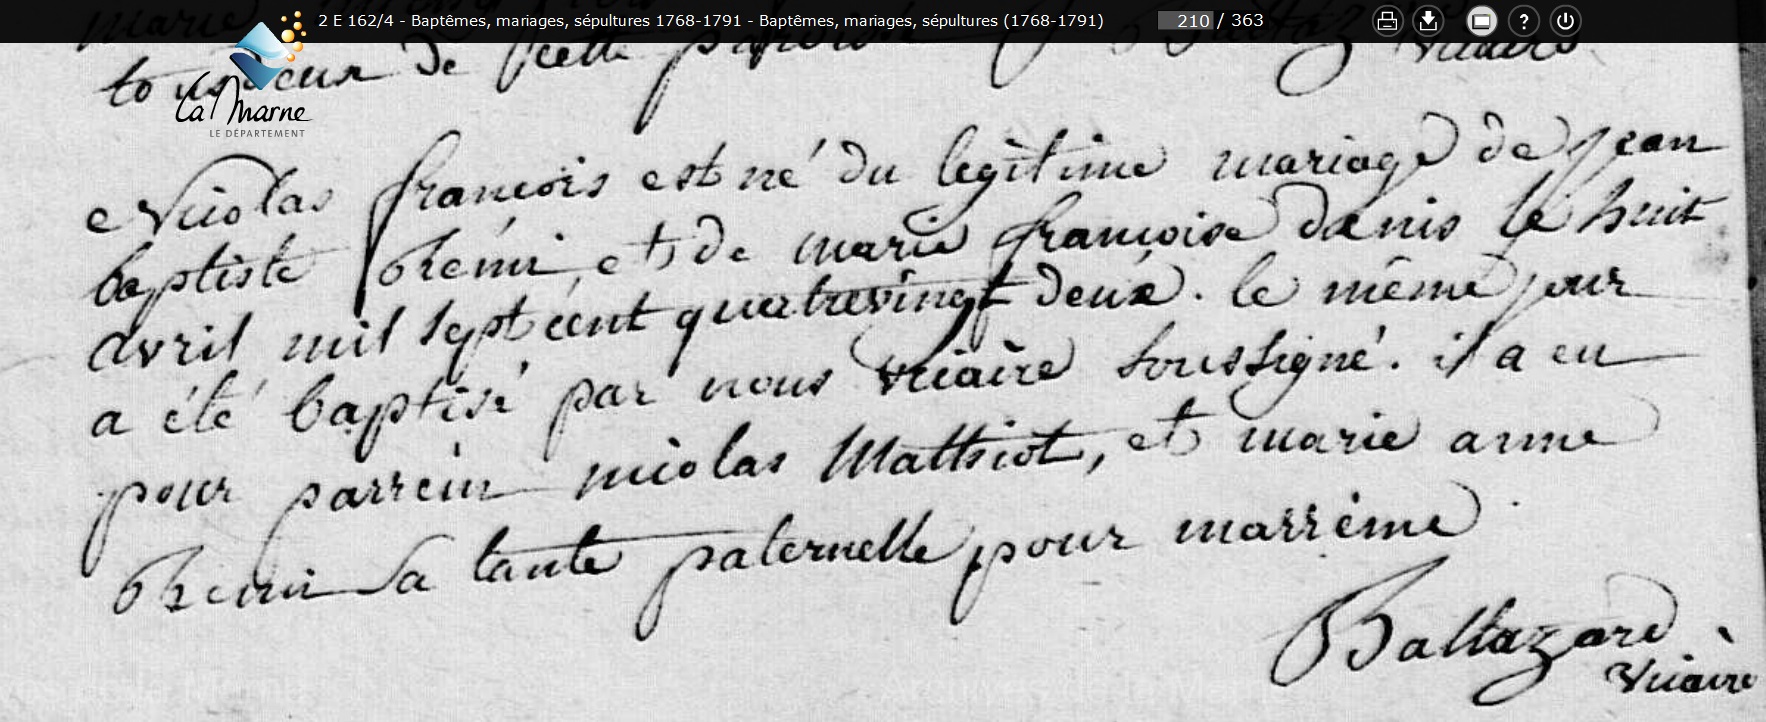 2 E 162/4 - Baptêmes, mariages, sépultures 1768-1791 - Baptêmes, mariages, sépultures (1768-1791) 210 / 363
La Marne
LE DÉPARTEMENT
de cette vicaire
Nicolas françois est né du legitime mariage de jean
baptiste Remi et de marie françoise danis le huit
avril mil sept cent quatrevingt deux. le même jour
a été baptisé par nous vicaire soussigné. il a eu
pour parrein nicolas Mathiot, et marie anne
Remi sa tante paternelle pour marreine
Baltazard
vicaire